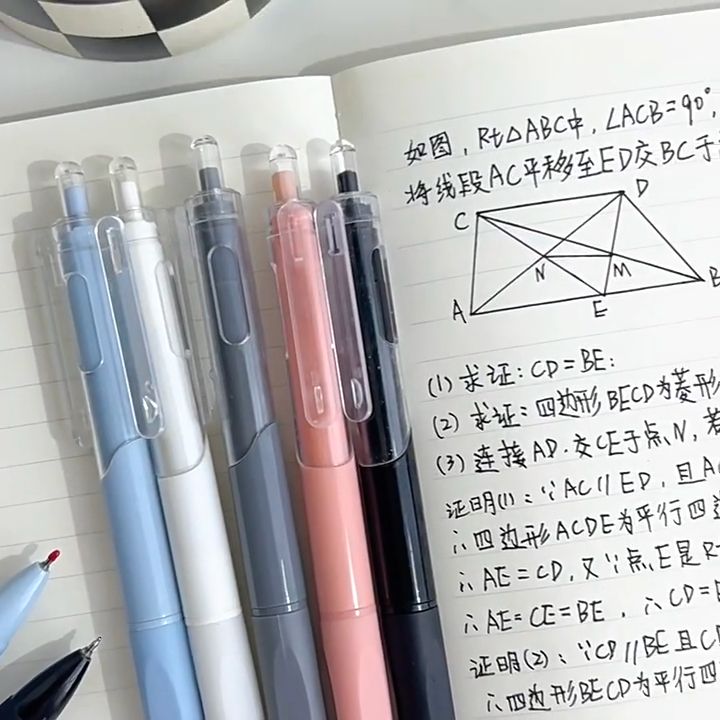 如图,Rt△ABC中,∠ACB=90°,
将线段AC平移至ED交BC于
C
D
N
M
B
A
E
(1) 求证:CD=BE;
(2) 求证:四边形BECD为菱形
(3) 连接AD.交CE于点N,若
证明(1):∵AC//ED,且A
∴四边形ACDE为平行四边
∴AE=CD,又∵点E是R
∴AE=CE=BE,∴CD=
证明(2):∵CD//BE且C
∴四边形BECD为平行四